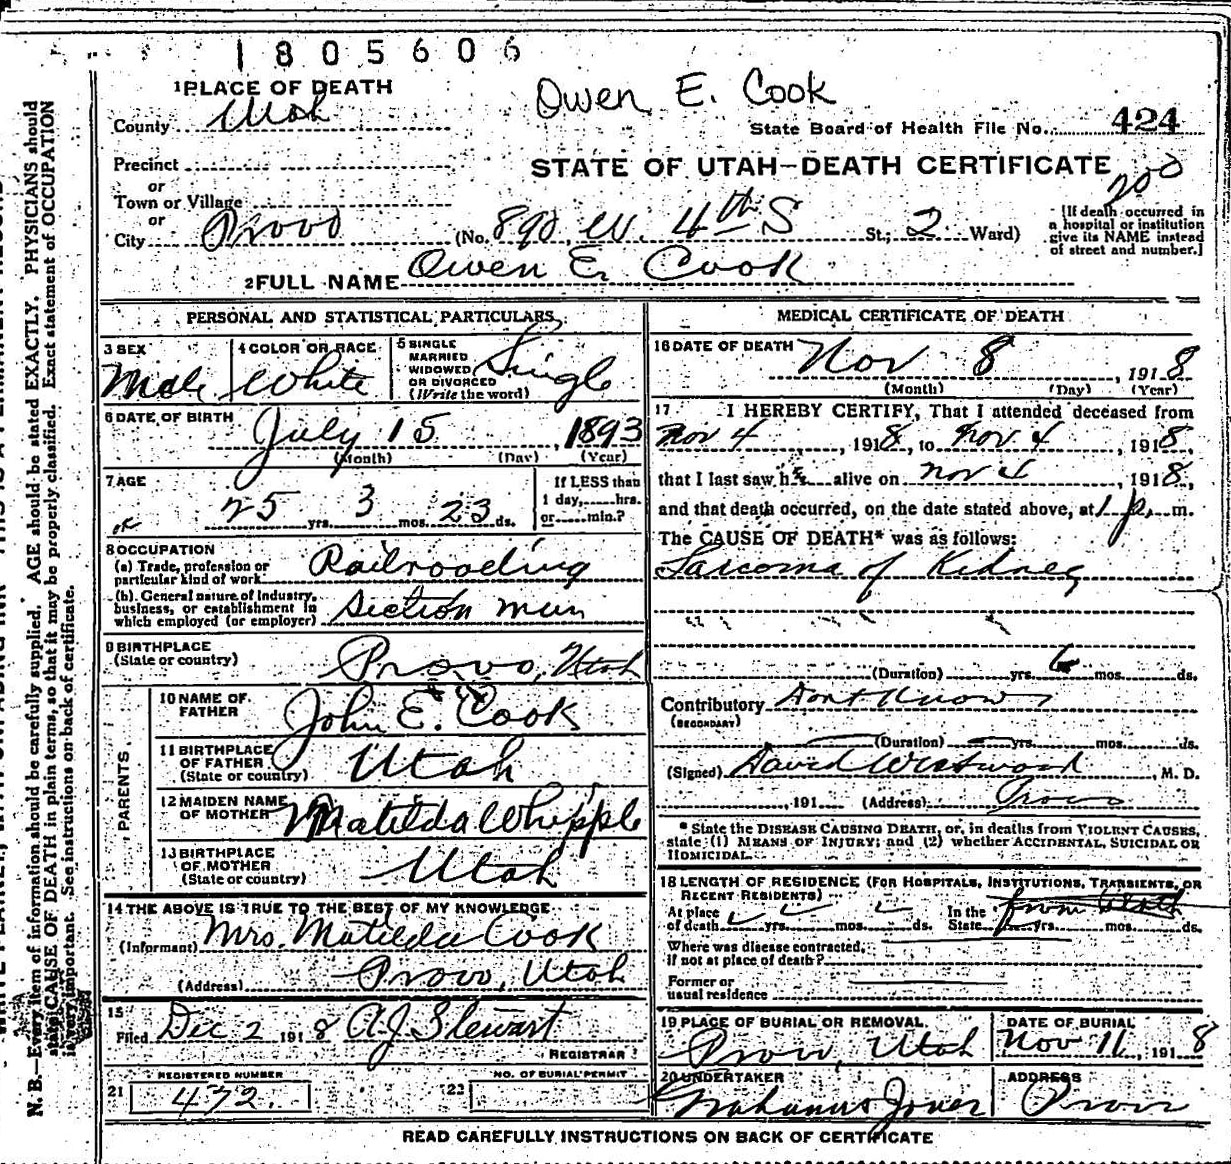 1805606
Owen E. Cook
1 PLACE OF DEATH
County Utah
State Board of Health File No. 424
Precinct
STATE OF UTAH—DEATH CERTIFICATE
200
or
Town or Village
or
City Provo (No. 890 W. 4th S St.; 2 Ward)
[If death occurred in
a hospital or institution
give its NAME instead
of street and number.]
2 FULL NAME Owen E. Cook
PERSONAL AND STATISTICAL PARTICULARS
3 SEX Male
4 COLOR OR RACE White
5 SINGLE
MARRIED
WIDOWED
OR DIVORCED
(Write the word) Single
6 DATE OF BIRTH July 15, 1893
(Month) (Day) (Year)
7 AGE
25 yrs. 3 mos. 23 ds.
If LESS than
1 day,......hrs.
or......min.?
8 OCCUPATION
(a) Trade, profession or
particular kind of work Railroading
(b) General nature of industry,
business, or establishment in
which employed (or employer) Section man
9 BIRTHPLACE
(State or country) Provo, Utah
PARENTS
10 NAME OF
FATHER John E. Cook
11 BIRTHPLACE
OF FATHER
(State or country) Utah
12 MAIDEN NAME
OF MOTHER Matilda Whipple
13 BIRTHPLACE
OF MOTHER
(State or country) Utah
14 THE ABOVE IS TRUE TO THE BEST OF MY KNOWLEDGE
(Informant) Mrs. Matilda Cook
(Address) Provo, Utah
15
Filed Dec 2 1918 A.J. Stewart
REGISTRAR
REGISTERED NUMBER
21 432
NO. OF BURIAL PERMIT
22
MEDICAL CERTIFICATE OF DEATH
16 DATE OF DEATH Nov 8, 1918
(Month) (Day) (Year)
17 I HEREBY CERTIFY, That I attended deceased from
Nov 4, 1918, to Nov. 4, 1918,
that I last saw h alive on Nov 4, 1918,
and that death occurred, on the date stated above, at 1 p. m.
The CAUSE OF DEATH* was as follows:
Sarcoma of Kidney
(Duration) yrs. 6 mos. ds.
Contributory Dont Know
(SECONDARY)
(Duration) yrs. mos. ds.
(Signed) David Westwood, M. D.
, 191 (Address) Provo
* State the DISEASE CAUSING DEATH, or, in deaths from VIOLENT CAUSES,
state (1) MEANS OF INJURY; and (2) whether ACCIDENTAL, SUICIDAL OR
HOMICIDAL.
18 LENGTH OF RESIDENCE (FOR HOSPITALS, INSTITUTIONS, TRANSIENTS, OR
RECENT RESIDENTS)
At place
of death yrs. mos. ds.
In the
State from yrs. mos. ds.
Where was disease contracted,
if not at place of death?
Former or
usual residence
19 PLACE OF BURIAL OR REMOVAL
Provo, Utah
DATE OF BURIAL
Nov 11, 1918
20 UNDERTAKER
Jones
ADDRESS
Provo
READ CAREFULLY INSTRUCTIONS ON BACK OF CERTIFICATE
N. B.—Every item of information should be carefully supplied. AGE should be stated EXACTLY. PHYSICIANS should
state CAUSE OF DEATH in plain terms, so that it may be properly classified. Exact statement of OCCUPATION
is very important. See instructions on back of certificate.